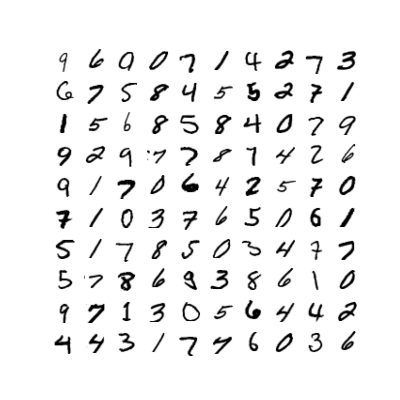 9 6 0 0 7 1 4 2 7 3
6 7 5 8 4 5 5 2 7 1
1 5 6 8 5 8 4 0 7 9
9 2 9 7 7 8 7 4 2 6
9 1 7 0 6 4 2 5 7 0
7 1 0 3 7 6 5 0 6 1
5 1 7 8 5 0 3 4 7 7
5 7 8 6 9 3 8 6 1 0
9 7 1 3 0 5 6 4 4 2
4 4 3 1 7 7 6 0 3 6